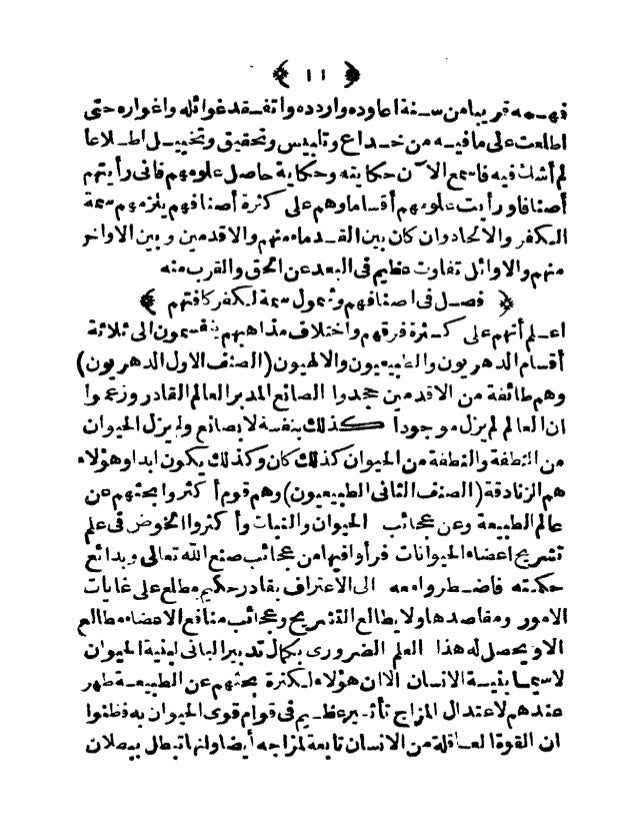 ﴿ ١١ ﴾
فهمه قريبا من سنة اعاوده وارددہ واتفقد غوائله واغواره حتى
اطلعت على ما فيه من خداع وتلبيس وتحقيق وتخييل اطلاعا
لم أشك فيه فاسمع الآن حكايته وحكاية حاصل علومهم فانى رأيتهم
أصنافا ورأيت علومهم أقساما وهم على كثرة أصنافهم يلزمهم سمة
الكفر والالحاد وان كان بين القدماء منهم والاقدمين وبين الاواخر
منهم والاوائل تفاوت عظيم فى البعد عن الحق والقرب منه
﴿ فصل فى اصنافهم وشمول سمة الكفر كافتهم ﴾
اعلم أنهم على كثرة فرقهم واختلاف مذاهبهم ينقسمون الى ثلاثة
أقسام الدهريون والطبيعيون والالهيون (الصنف الاول الدهريون)
وهم طائفة من الاقدمين جحدوا الصانع المدبر العالم القادر وزعموا
ان العالم لم يزل موجودا كذلك بنفسه لا بصانع ولم يزل الحيوان
من النطفة والنطفة من الحيوان كذلك كان وكذلك يكون ابدا وهؤلاء
هم الزنادقة (الصنف الثانى الطبيعيون) وهم قوم أكثروا بحثهم عن
عالم الطبيعة وعن عجائب الحيوان والنبات وأكثروا الخوض فى علم
تشريح اعضاء الحيوانات فرأوا فيها من عجائب صنع الله تعالى وبدائع
حكمته فاضطروا معه الى الاعتراف بقادر حكيم مطلع على غايات
الامور ومقاصدها ولا يطالع التشريح وعجائب منافع الاعضاء مطالع
الا ويحصل له هذا العلم الضرورى بكمال تدبير البانى لبنية الحيوان
لا سيما بنية الانسان الا ان هؤلاء لكثرة بحثهم عن الطبيعة ظهر
عندهم لاعتدال المزاج تأثير عظيم فى قوام قوى الحيوان به فظنوا
ان القوة العاقلة من الانسان تابعة لمزاجه أيضا وانها تبطل ببطلان